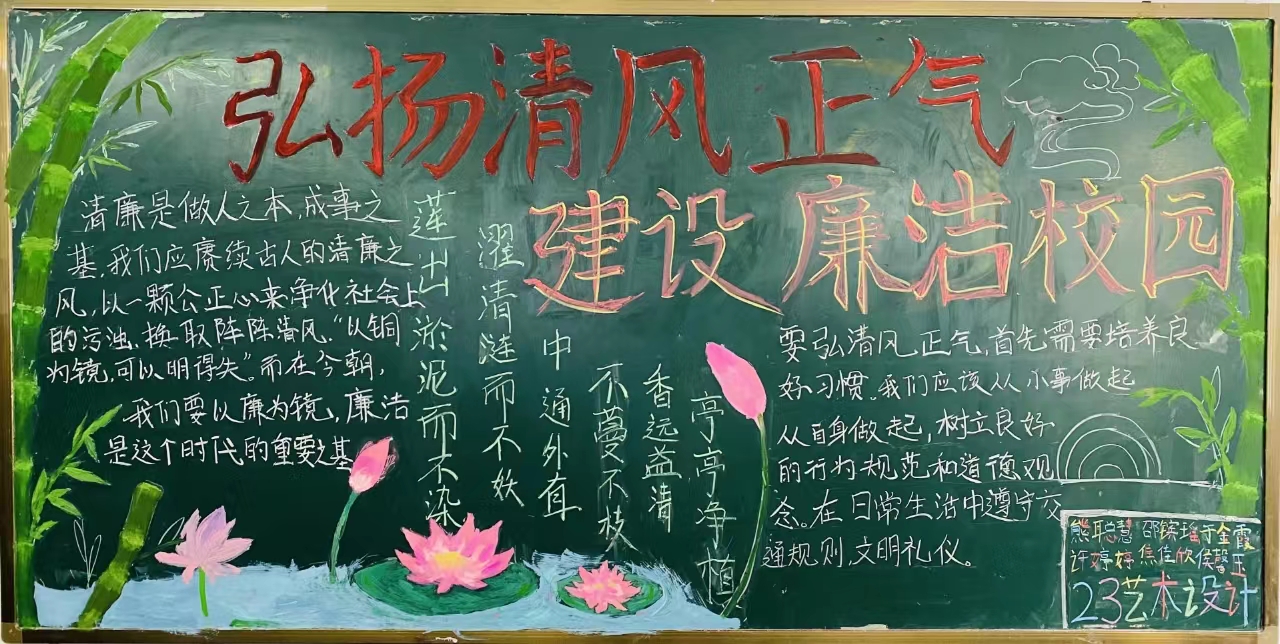 弘扬清风正气
建设廉洁校园
清廉是做人之本,成事之
基,我们应赓续古人的清廉之
风,以一颗公正心来净化社会上
的污浊,换取阵阵清风。"以铜
为镜,可以明得失"。而在今朝,
我们要以廉为镜,廉洁
是这个时代的重要之基
莲出淤泥而不染
濯清涟而不妖
中通外直
不蔓不枝
香远益清
亭亭净植
要弘清风正气,首先需要培养良
好习惯。我们应该从小事做起
从自身做起,树立良好
的行为规范和道德观
念。在日常生活中遵守交
通规则,文明礼仪。
熊聪慧 邵 瑶于金霞
许婷婷 焦佳欣 侯馨玉
23艺术设计